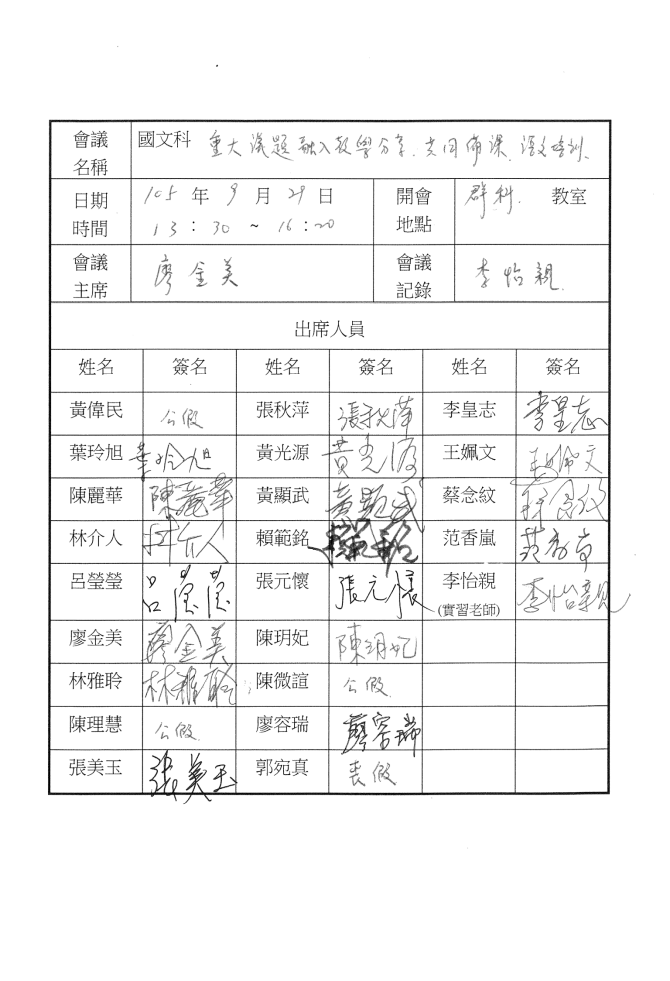 會議名稱 國文科 重大議題融入教學分享、共同備課、語文培訓、
日期時間 105 年 9 月 29 日 13 : 30 ~ 16 : 20 開會地點 群科 教室
會議主席 廖金美 會議記錄 李怡親
出席人員
姓名 簽名 姓名 簽名 姓名 簽名
黃偉民 公假 張秋萍 張秋萍 李皇志 李皇志
葉玲旭 葉玲旭 黃光源 黃光源 王姵文 王姵文
陳麗華 陳麗華 黃顯武 黃顯武 蔡念紋 蔡念紋
林介人 林介人 賴範銘 賴範銘 范香嵐 范香嵐
呂瑩瑩 呂瑩瑩 張元懷 張元懷 李怡親 李怡親
(實習老師)
廖金美 廖金美 陳玥妃 陳玥妃
林雅聆 林雅聆 陳微諠 公假
陳理慧 公假 廖容瑞 廖容瑞
張美玉 張美玉 郭宛真 喪假